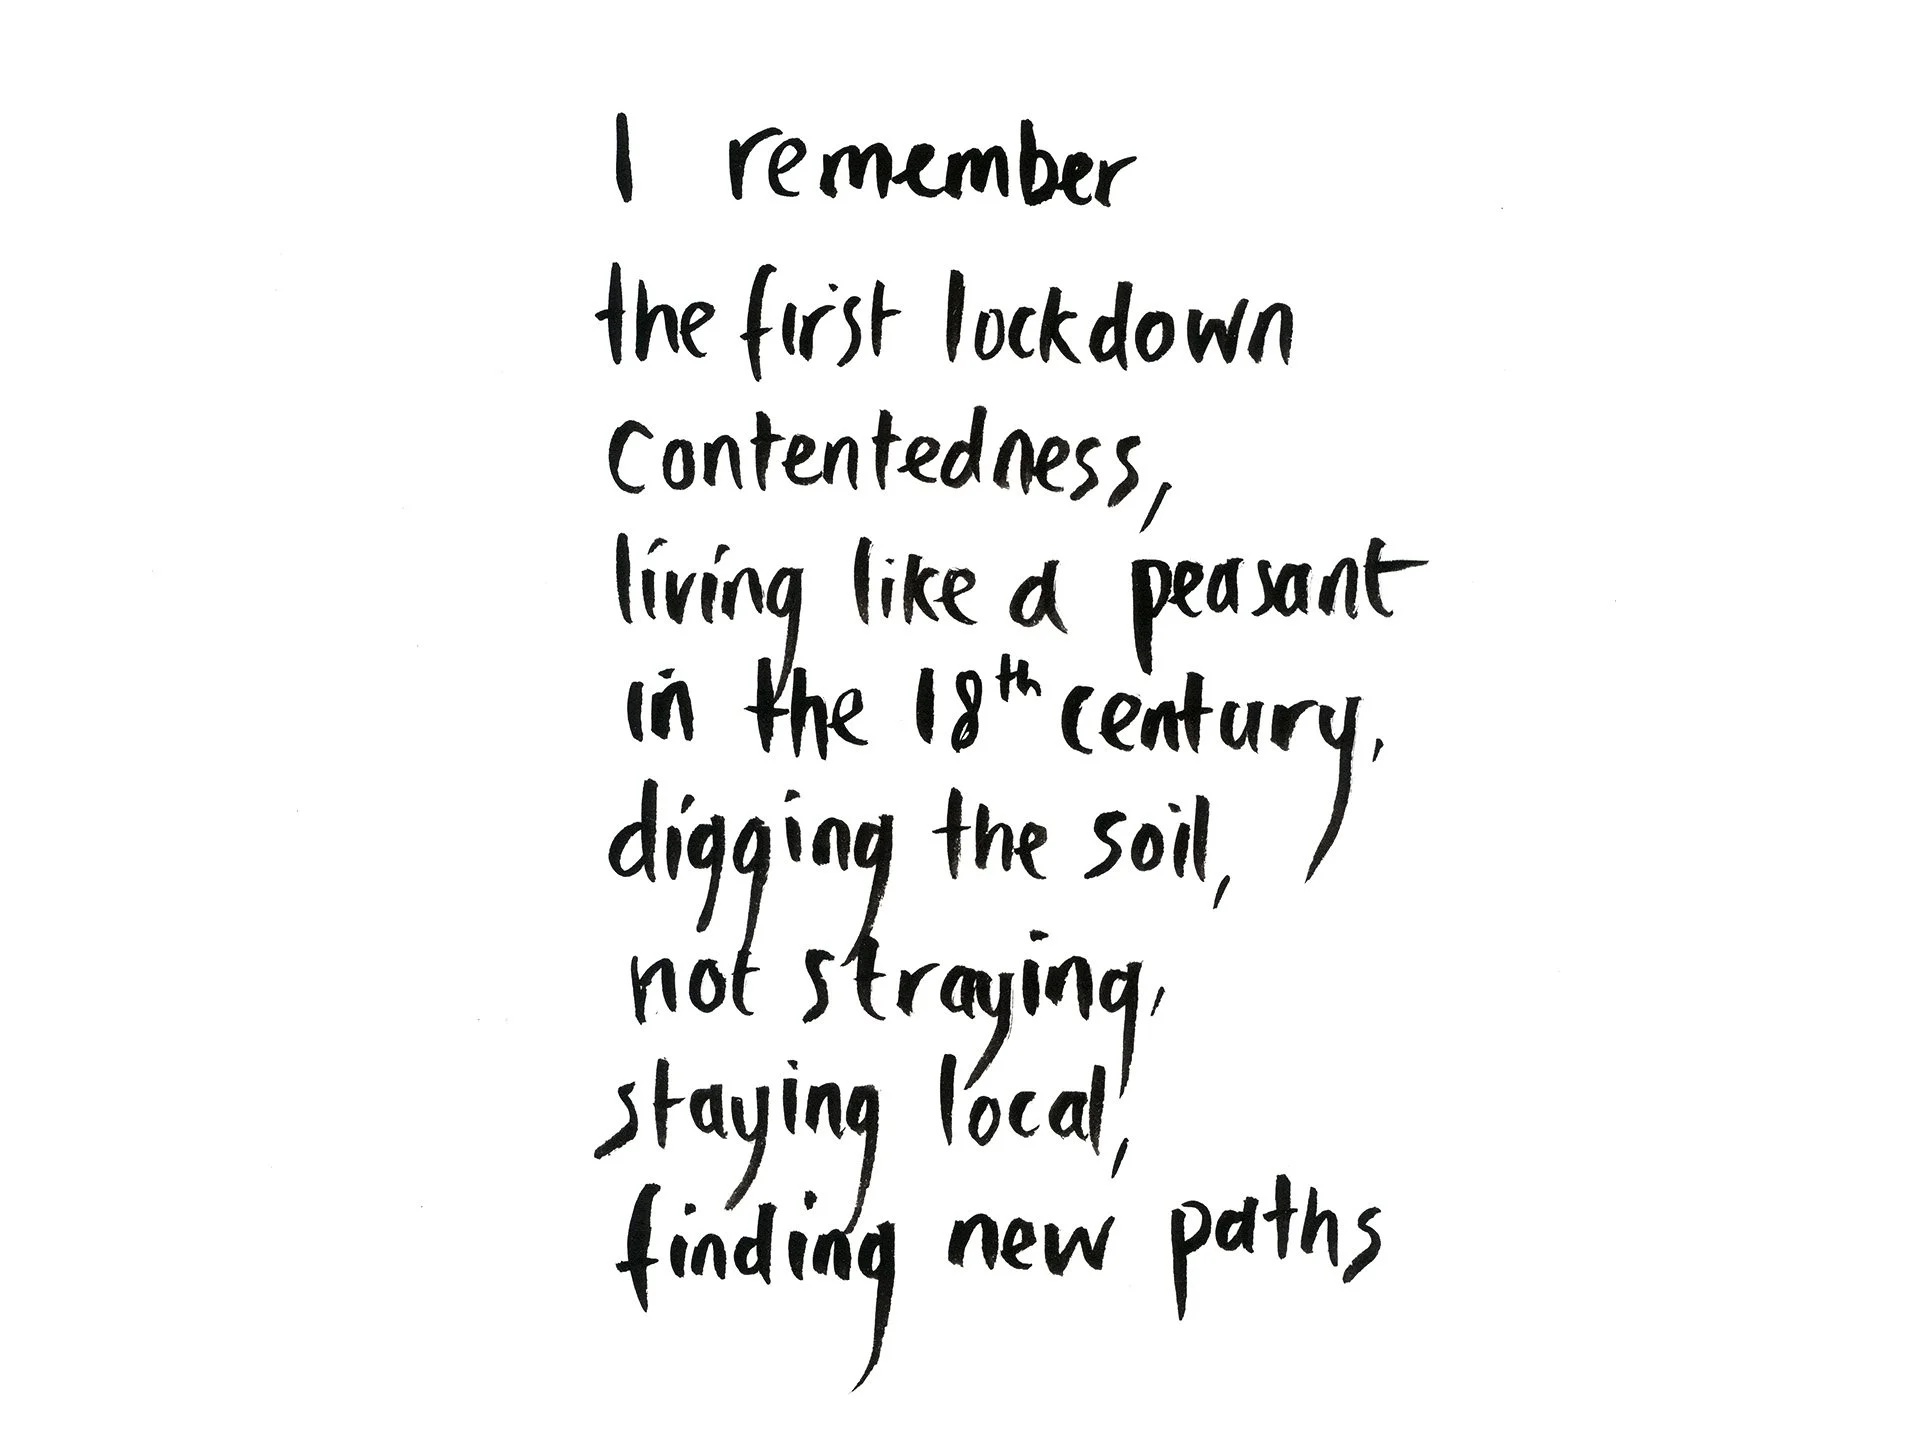 I remember
the first lockdown
contentedness,
living like a peasant
in the 18th century,
digging the soil,
not straying,
staying local,
finding new paths